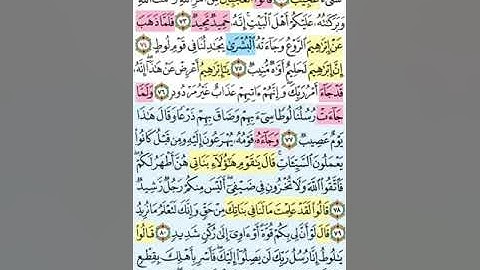 وَبَرَكَٰتُهُۥ عَلَيْكُمْ أَهْلَ ٱلْبَيْتِ إِنَّهُۥ حَمِيدٌ مَّجِيدٌ ٧٣ فَلَمَّا ذَهَبَ
عَنْ إِبْرَٰهِيمَ ٱلرَّوْعُ وَجَآءَتْهُ ٱلْبُشْرَىٰ يُجَٰدِلُنَا فِى قَوْمِ لُوطٍ ٧٤
إِنَّ إِبْرَٰهِيمَ لَحَلِيمٌ أَوَّٰهٌ مُّنِيبٌ ٧٥ يَٰٓإِبْرَٰهِيمُ أَعْرِضْ عَنْ هَٰذَآ إِنَّهُۥ
قَدْ جَآءَ أَمْرُ رَبِّكَ وَإِنَّهُمْ ءَاتِيهِمْ عَذَابٌ غَيْرُ مَرْدُودٍ ٧٦ وَلَمَّا
جَآءَتْ رُسُلُنَا لُوطًا سِىٓءَ بِهِمْ وَضَاقَ بِهِمْ ذَرْعًا وَقَالَ هَٰذَا
يَوْمٌ عَصِيبٌ ٧٧ وَجَآءَهُۥ قَوْمُهُۥ يُهْرَعُونَ إِلَيْهِ وَمِن قَبْلُ كَانُوا۟
يَعْمَلُونَ ٱلسَّيِّـَٔاتِ قَالَ يَٰقَوْمِ هَٰٓؤُلَآءِ بَنَاتِى هُنَّ أَطْهَرُ لَكُمْ
فَٱتَّقُوا۟ ٱللَّهَ وَلَا تُخْزُونِ فِى ضَيْفِىٓ أَلَيْسَ مِنكُمْ رَجُلٌ رَّشِيدٌ
٧٨ قَالُوا۟ لَقَدْ عَلِمْتَ مَا لَنَا فِى بَنَاتِكَ مِنْ حَقٍّ وَإِنَّكَ لَتَعْلَمُ مَا نُرِيدُ
٧٩ قَالَ لَوْ أَنَّ لِى بِكُمْ قُوَّةً أَوْ ءَاوِىٓ إِلَىٰ رُكْنٍ شَدِيدٍ ٨٠ قَالُوا۟
يَٰلُوطُ إِنَّا رُسُلُ رَبِّكَ لَن يَصِلُوٓا۟ إِلَيْكَ فَأَسْرِ بِأَهْلِكَ بِقِطْعٍ